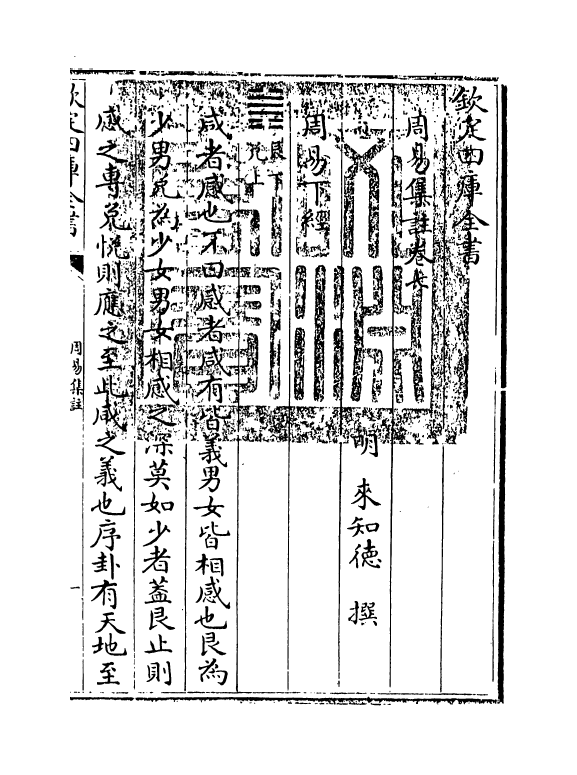 欽定四庫全書
周易集註卷七
明 來知德 撰
周易下經
艮下
兌上
咸者感也不曰感者咸有皆義男女皆相感也艮為
少男兌為少女男女相感之深莫如少者蓋艮止則
感之專兌悅則應之至此咸之義也序卦有天地至
欽定四庫全書
周易集註
一